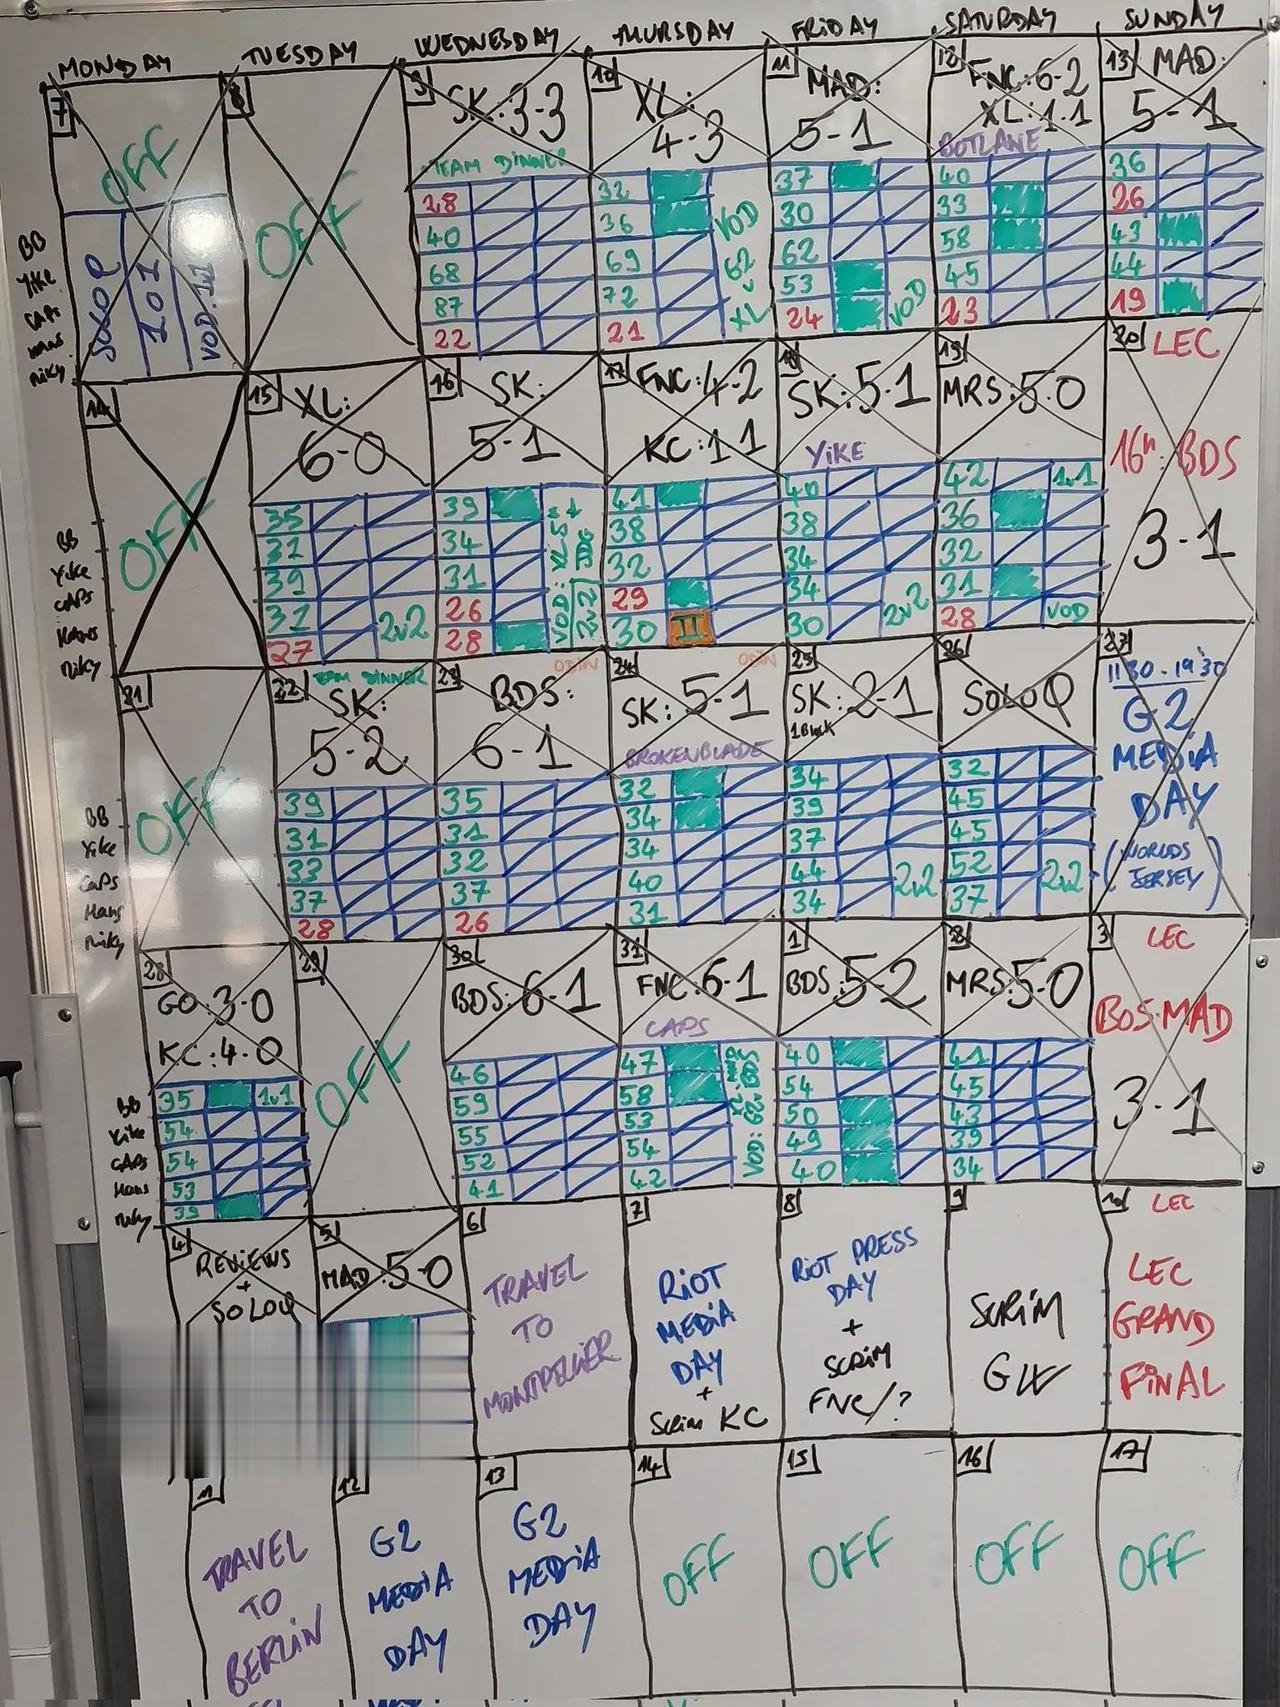 MONDAY
TUESDAY
WEDNESDAY
THURSDAY
FRIDAY
SATURDAY
SUNDAY
7
OFF
SOLOQ
101
BB
Yike
CAPS
HANS
Miky
8
OFF
9
SK:3-3
TEAM DINNER
28
40
68
87
22
10
XL:
4-3
32
36
69
72
21
VOD
XL v G2
11
MAD:
5-1
37
30
62
53
24
VOD
12
FNC:6-2
XL:1-1
BOTLANE
40
33
58
45
23
13
MAD:
5-1
36
26
43
44
19
14
OFF
BB
Yike
CAPS
HANS
Miky
15
XL:
6-0
35
31
39
31
27
2v2
16
SK:
5-1
39
34
31
26
28
2v2
17
FNC:4-2
KC:1 1
41
38
32
29
30
II
18
SK:5-1
YIKE
40
38
34
34
30
2v2
19
MRS:5-0
42
36
32
31
28
1v1
VOD
20
LEC
16h: BDS
3-1
21
OFF
BB
Yike
CAPS
Hans
Miky
22
TEAM DINNER
SK:
5-2
39
31
33
37
28
23
ODIN
BDS:
6-1
35
31
32
37
26
24
ODIN
SK:5-1
BROKENBLADE
32
34
34
40
31
25
SK:2-1
1 Block
34
39
37
44
34
2v2
26
SOLOQ
32
45
45
52
37
2v2
27
11:30-19:30
G2
MEDIA
DAY
(WORLDS
JERSEY)
28
GO:3-0
KC:4-0
35
54
54
53
39
1v1
BB
Yike
CAPS
Hans
Miky
29
OFF
30
BDS:6-1
46
59
55
52
41
31
FNC:6-1
CAPS
47
58
53
54
42
1
BDS:5-2
40
54
50
49
40
2
MRS:5-0
41
45
43
39
34
3
LEC
BO5:MAD
3-1
4
REVIEWS
+
SOLOQ
5
MAD:5-0
6
TRAVEL
TO
MONTPELLIER
7
RIOT
MEDIA
DAY
+
Scrim KC
8
RIOT PRESS
DAY
+
SCRIM
FNC/?
9
SCRIM
GW
10
LEC
LEC
GRAND
FINAL
TRAVEL
TO
BERLIN
12
G2
MEDIA
DAY
13
G2
MEDIA
DAY
14
OFF
15
OFF
16
OFF
17
OFF